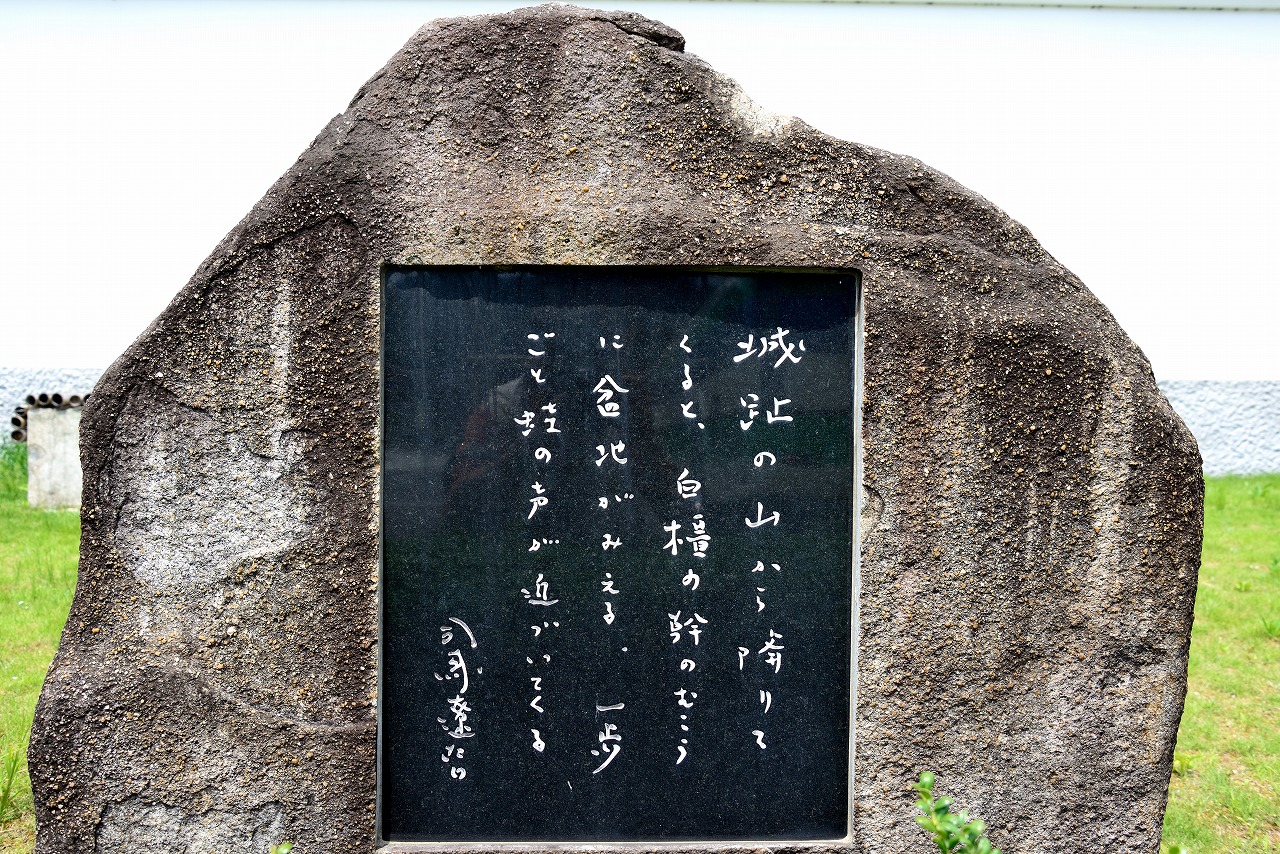 城趾の山から降りて
くると、白橿の幹のむこう
に盆地がみえる。一歩
ごと蛙の声が近づいてくる
司馬遼太郎